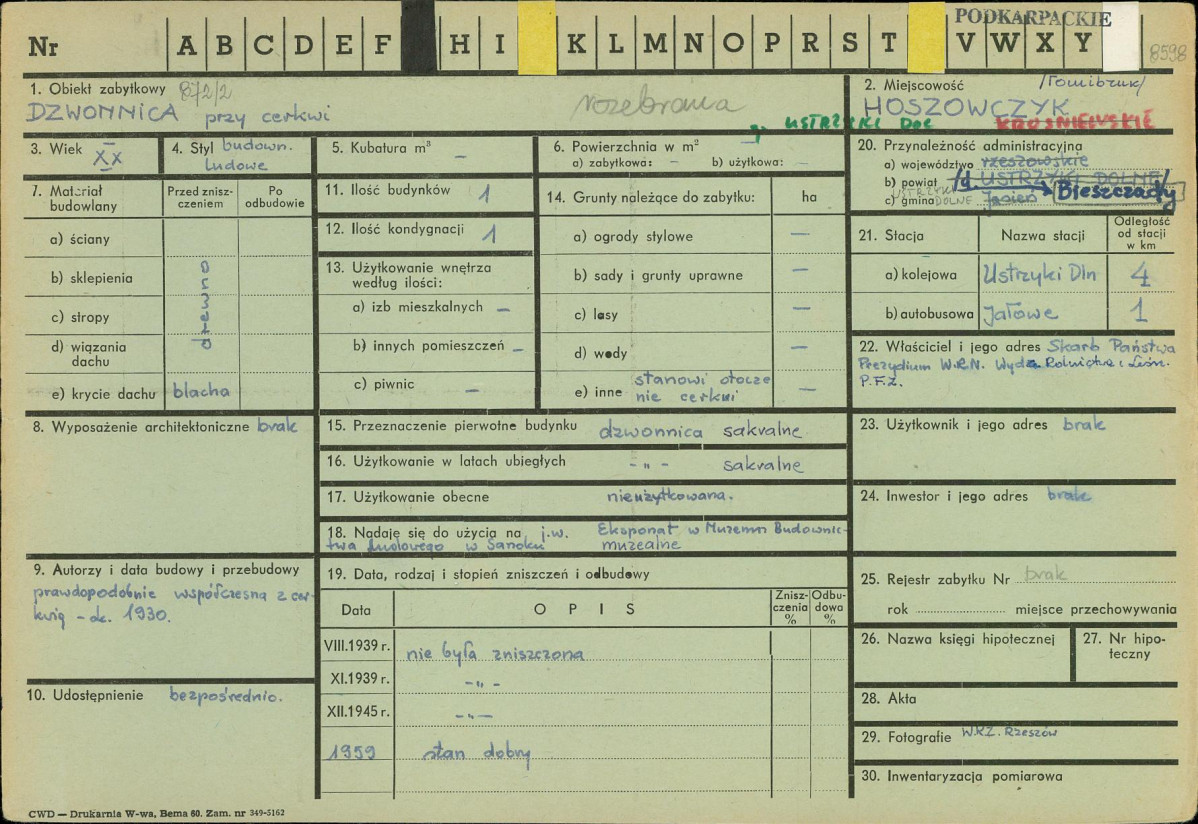 PODKARPACKIE
Nr A B C D E F H I K L M N O P R S T V W X Y
8598
1. Obiekt zabytkowy 872/2
DZWONNICA przy cerkwi
rozebrana
2. Miejscowość
HOSZOWCZYK
g. USTRZYKI DOL
KROŚNIEŃSKIE
3. Wiek XX
4. Styl budown. ludowe
5. Kubatura m³ –
6. Powierzchnia w m²
a) zabytkowa: – b) użytkowa: –
20. Przynależność administracyjna
a) województwo rzeszowskie
b) powiat USTRZYKI DOLNE
Bieszczady
c) gmina USTRZYKI DOLNE Jasień
7. Materiał budowlany
Przed zniszczeniem
Po odbudowie
a) ściany
b) sklepienia
c) stropy
d) wiązania dachu
drewno
e) krycie dachu blacha
11. Ilość budynków 1
12. Ilość kondygnacji 1
13. Użytkowanie wnętrza według ilości:
a) izb mieszkalnych –
b) innych pomieszczeń –
c) piwnic –
14. Grunty należące do zabytku: ha
a) ogrody stylowe –
b) sady i grunty uprawne –
c) lasy –
d) wody –
e) inne stanowi otocze
nie cerkwi –
21. Stacja
Nazwa stacji
Odległość od stacji w km
a) kolejowa Ustrzyki Dln 4
b) autobusowa Jałowe 1
22. Właściciel i jego adres Skarb Państwa
Prezydium W.R.N. Wydz. Rolnictwa i Leśn.
P.F.Z.
8. Wyposażenie architektoniczne brak
15. Przeznaczenie pierwotne budynku dzwonnica sakralne
16. Użytkowanie w latach ubiegłych -„- sakralne
17. Użytkowanie obecne nieużytkowana.
18. Nadaje się do użycia na j.w. Eksponat w Muzeum Budownic-
twa Ludowego w Sanoku muzealne
23. Użytkownik i jego adres brak
24. Inwestor i jego adres brak
9. Autorzy i data budowy i przebudowy
prawdopodobnie współczesna z cer-
kwią – ok. 1930.
10. Udostępnienie bezpośrednio.
19. Data, rodzaj i stopień zniszczeń i odbudowy
Data OPIS Zniszczenia % Odbudowa %
VIII.1939 r. nie była zniszczona
XI.1939 r. -„-
XII.1945 r. -„-
1959 stan dobry
25. Rejestr zabytku Nr brak
rok miejsce przechowywania
26. Nazwa księgi hipotecznej
27. Nr hipoteczny
28. Akta
29. Fotografie W.K.Z. Rzeszów
30. Inwentaryzacja pomiarowa
CWD — Drukarnia W-wa, Bema 60. Zam. nr 349-5162